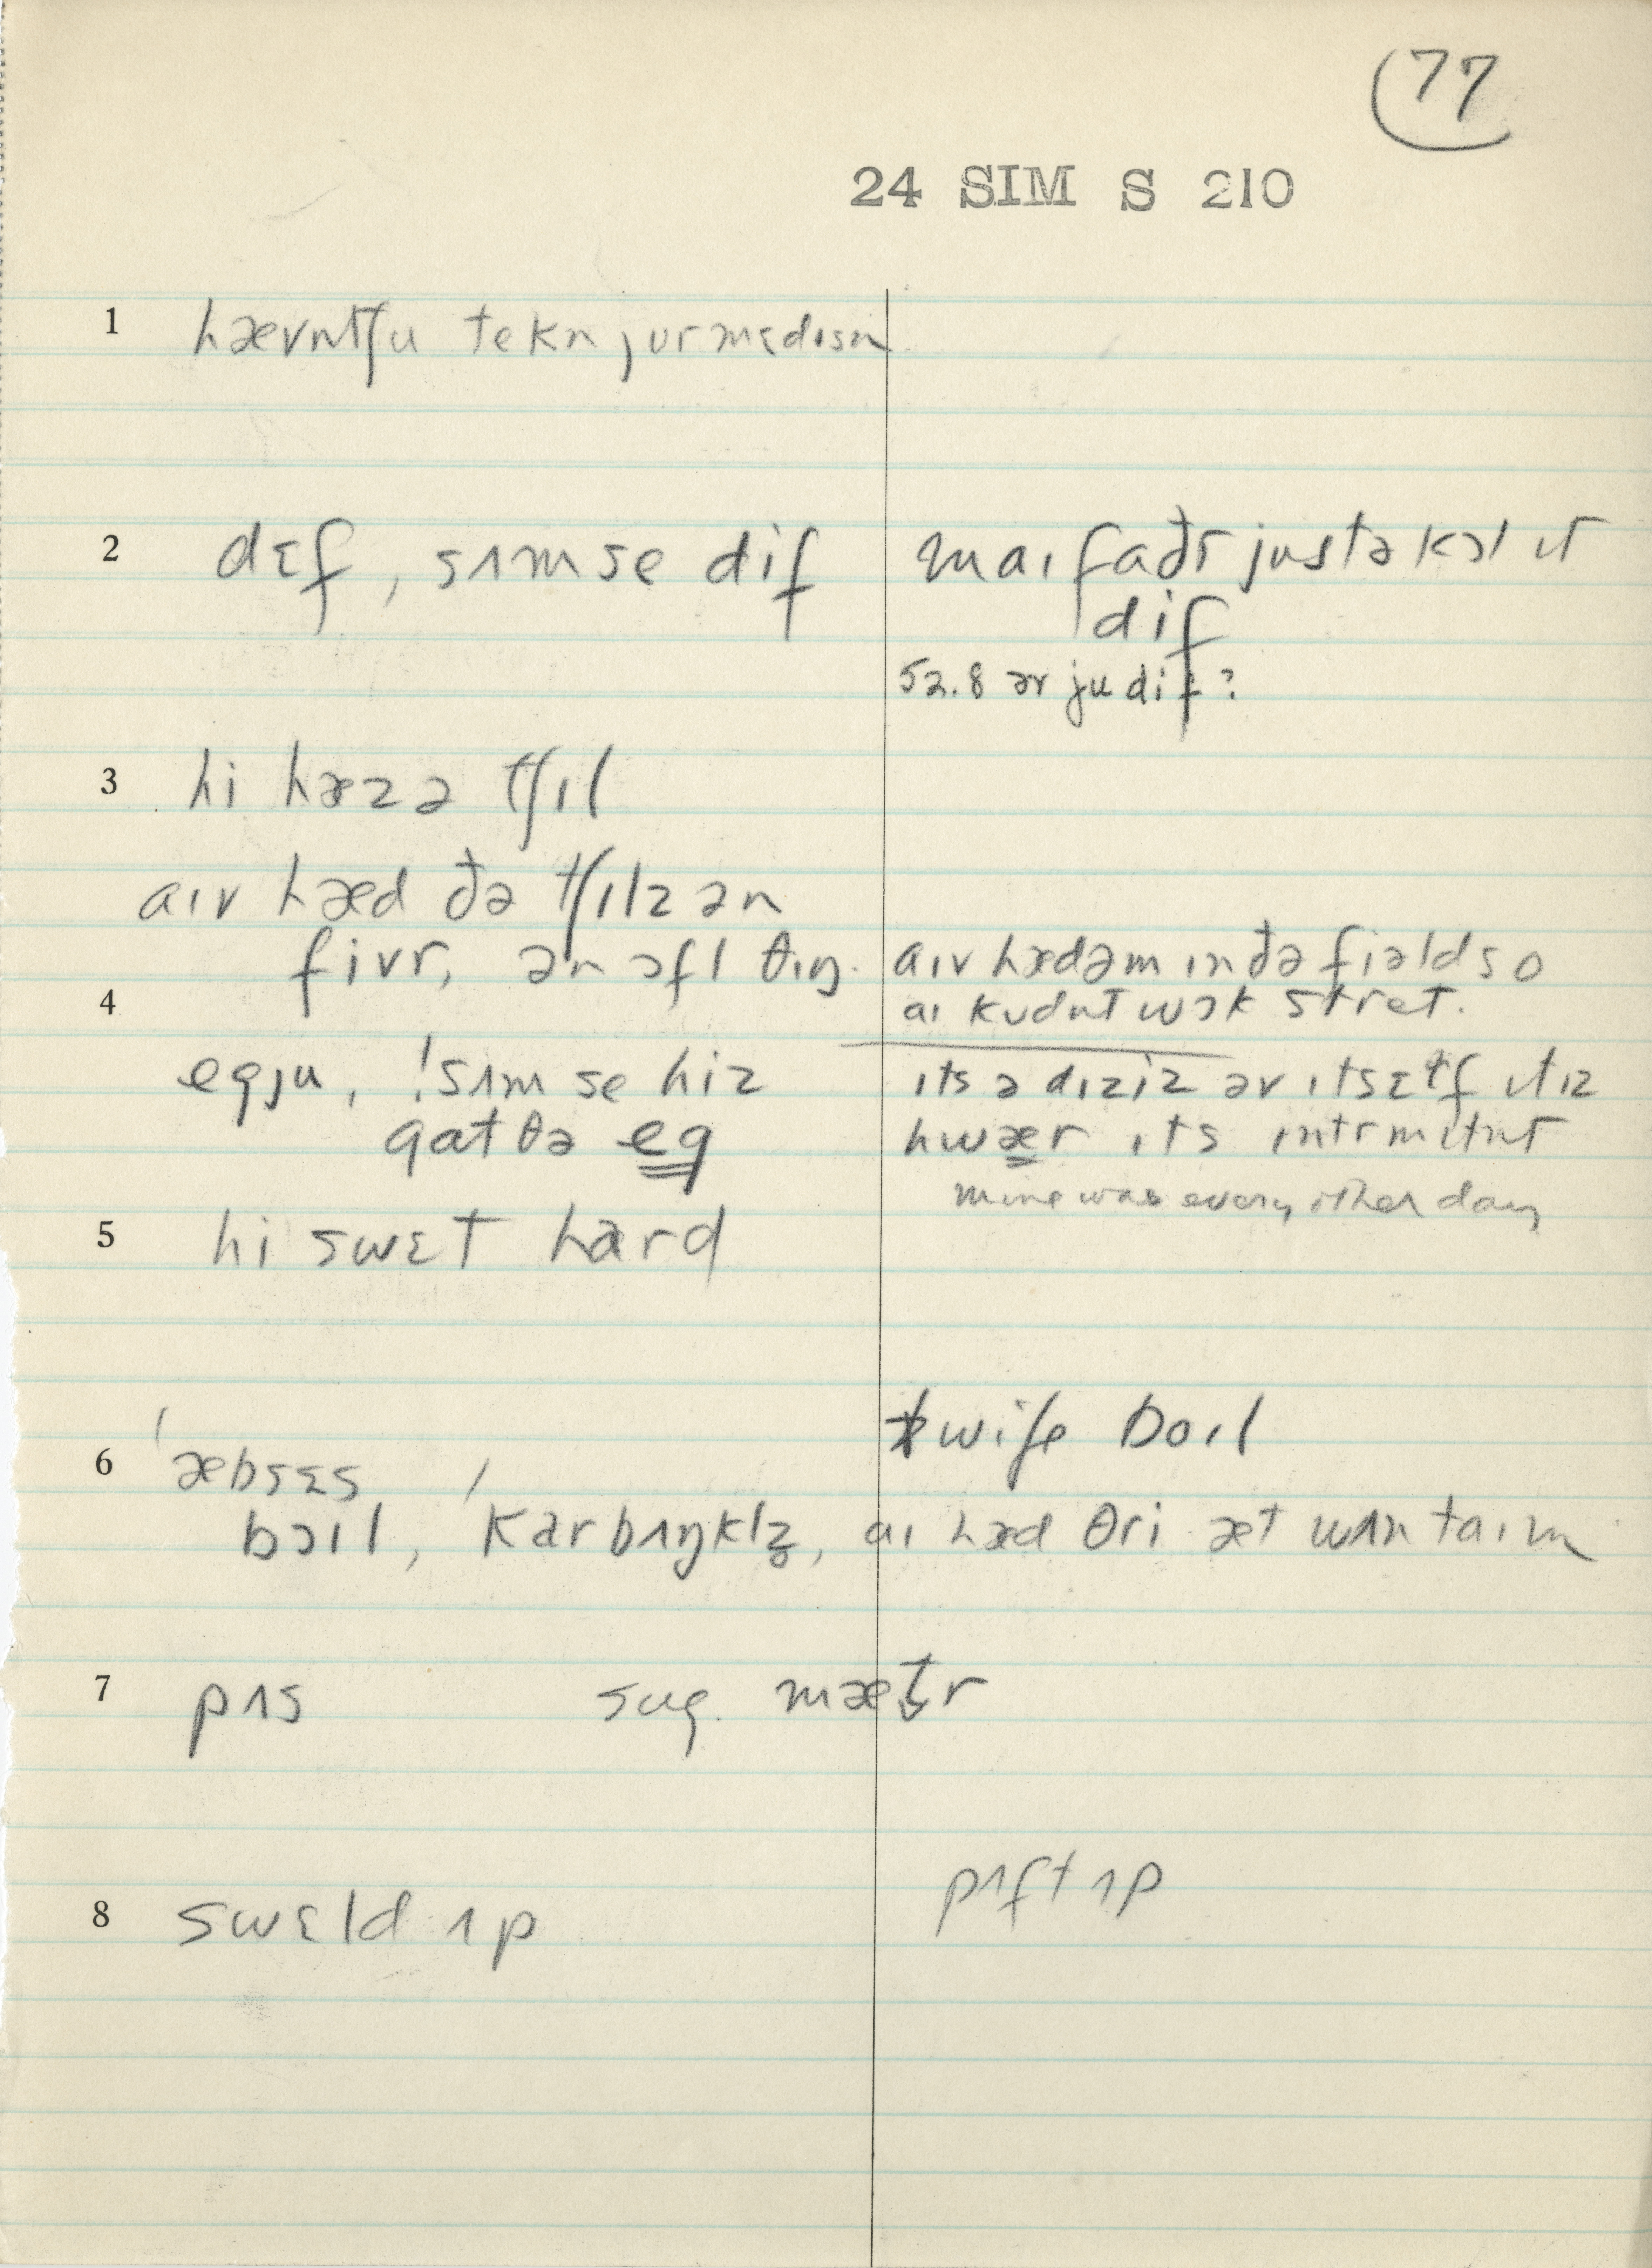 77
24 SIM S 210
1 hævn̩tʃu tekn̩ jʊr mɛdɪsn̩
2 dɛf, sʌm se dif
maɪ faðr justə kɔl ɪt
dif
52.8 ər ju dif?
3 hi hæz ə tʃɪl
aɪv hæd ðə tʃɪlz ən
fivr, ən ɔfl θɪŋ.
aɪv hæd əm ɪn ðə fiəld so
4 aɪ kʊdn̩t wɔk stret.
egju, !sʌm se hiz
gat θə eg
ɪts ə dɪziz əv ɪtsɛtf ɪtɪz
hwær ɪts ɪntrmɪtn̩t
mine was every other day
5 hi swɛt hard
wife boɪl
6 ˈæbsɛs
bɔɪl, ˈkarbʌŋklz̥, aɪ hæd θri æt wʌn taɪm
7 pʌs sug. mæt̬r
8 swɛld ʌp
pʌft ʌp